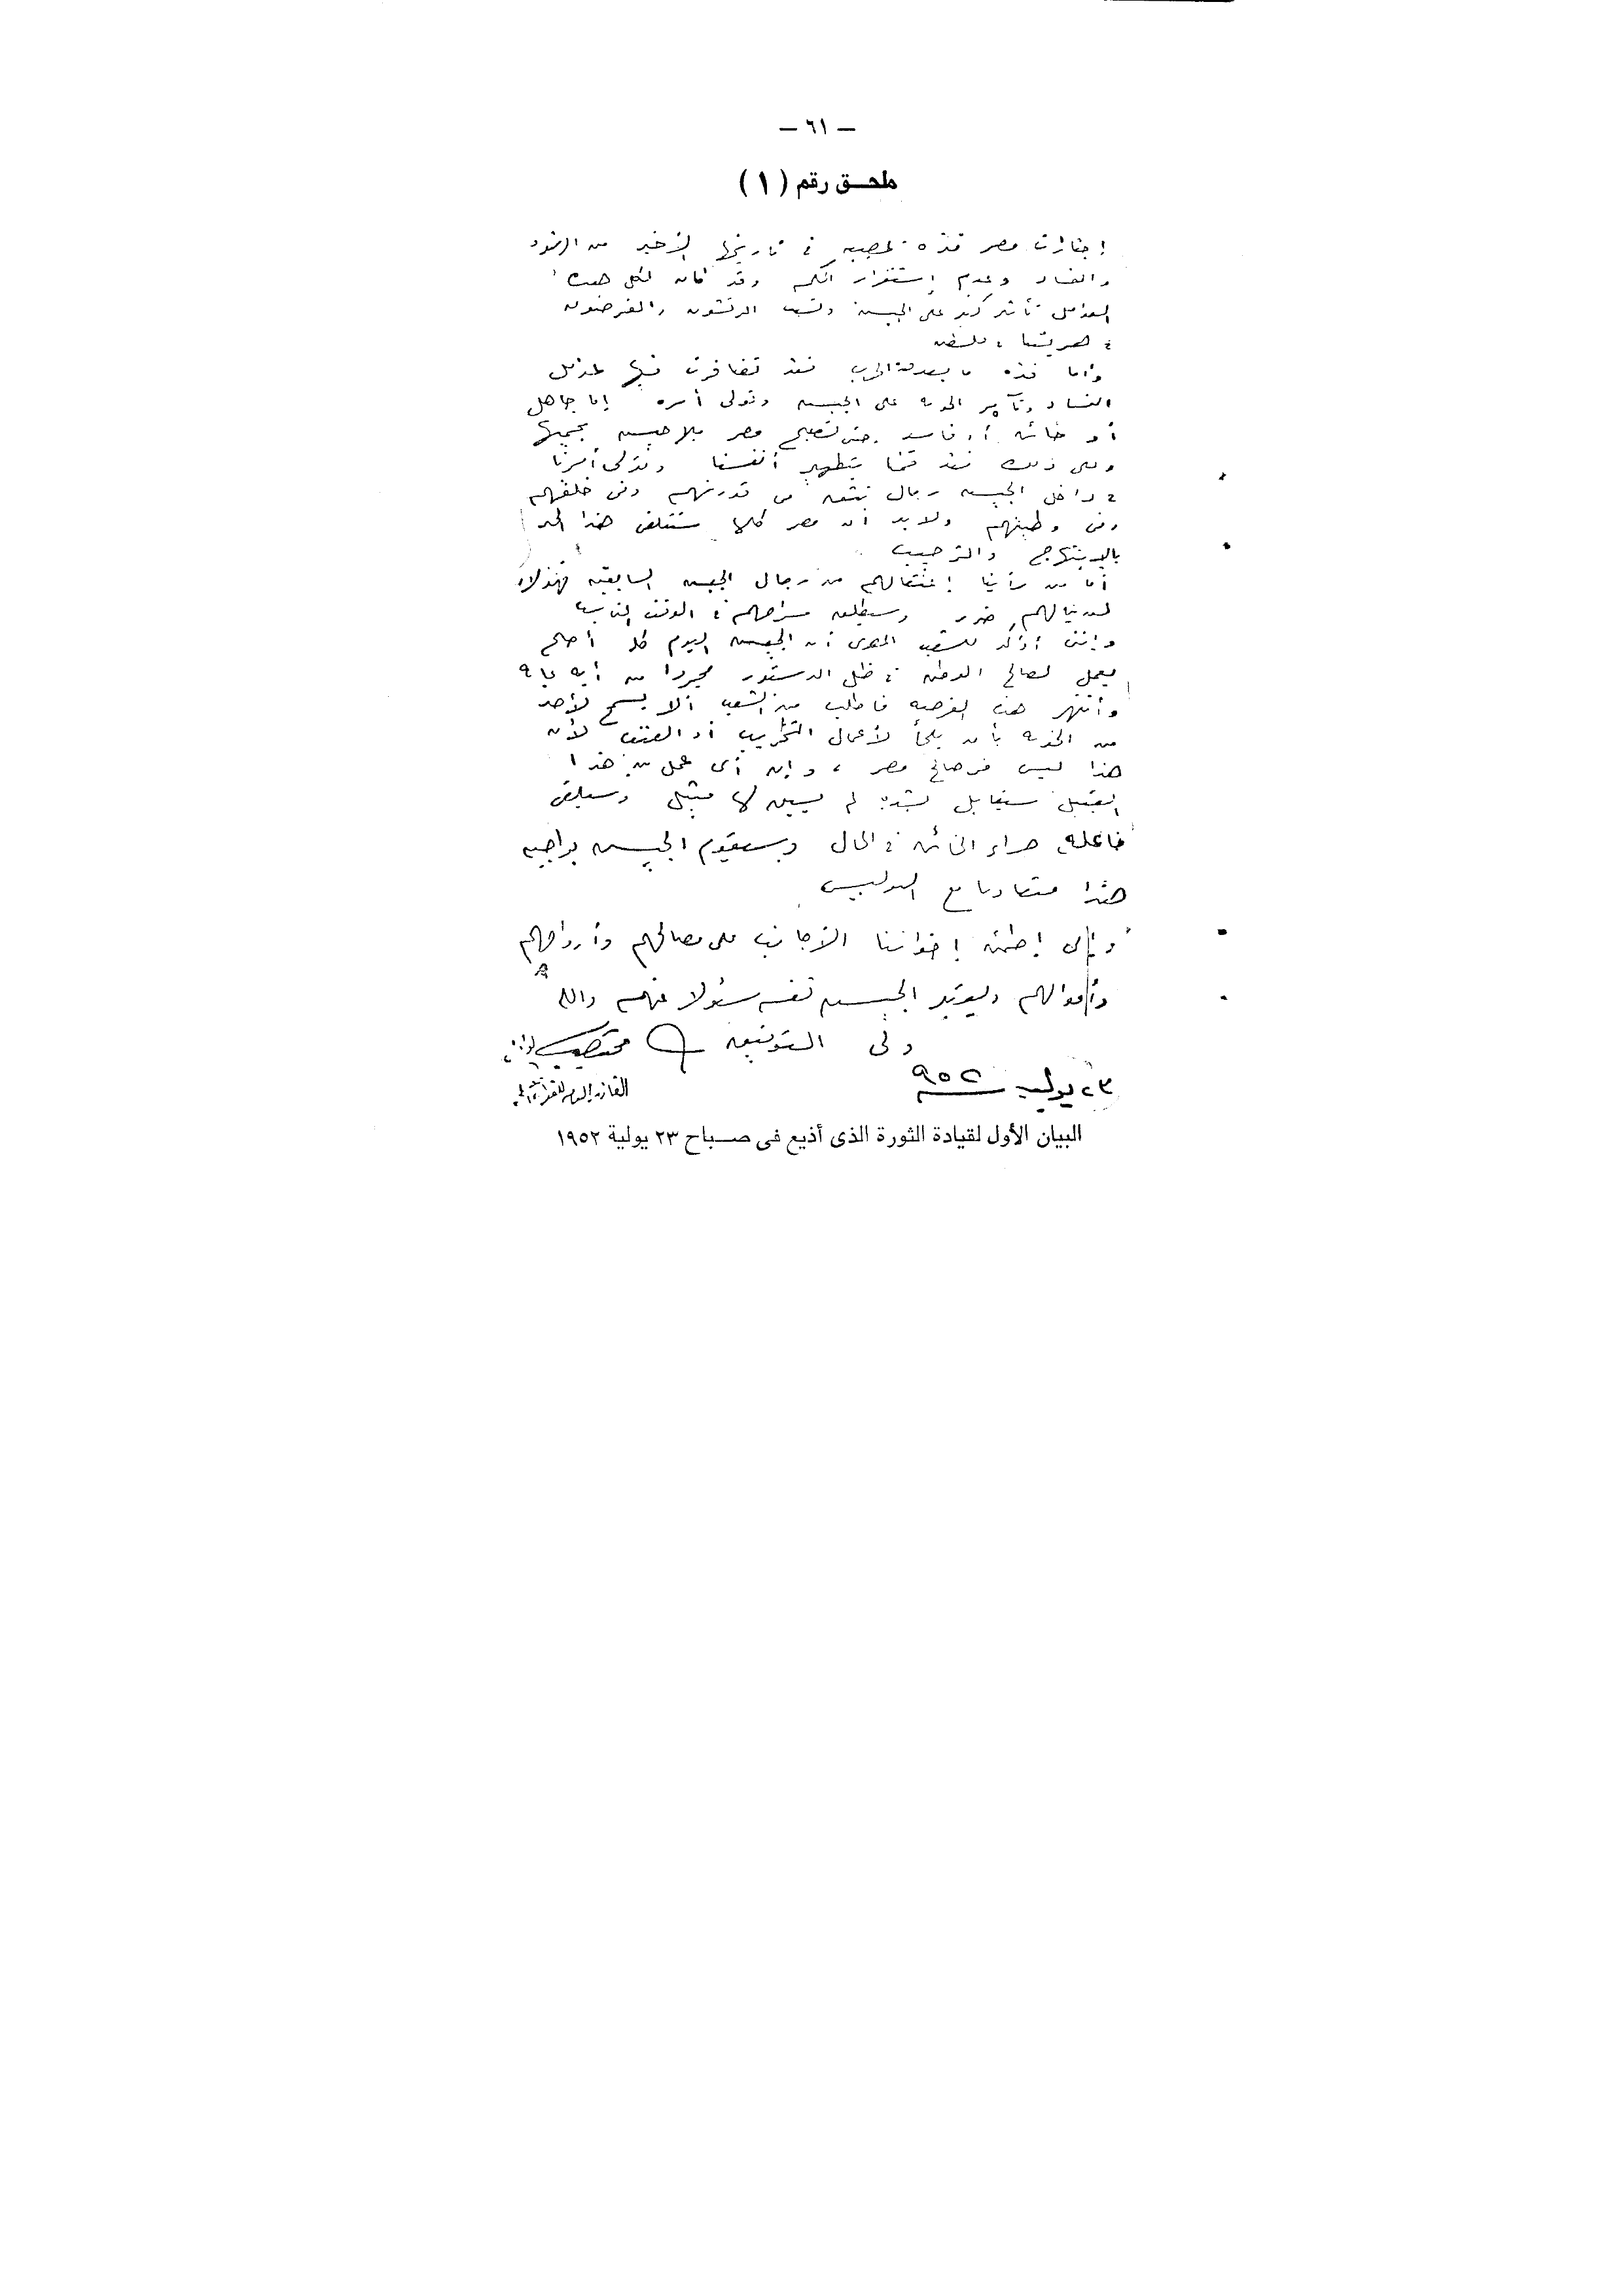 — ٦١ —
ملحق رقم (١)
إجتازت مصر فترة عصيبه فى تاريخها الأخير من الرشوه
والفساد وعدم إستقرار الحكم وقد كان لكل هذه
العوامل تأثير كبير على الجيش وتسبب المرتشون والمغرضون
فى هزيمتنا فى فلسطين
وأما فترة ما بعد هذه الحرب فقد تضافرت فيها عوامل
الفساد وتآمر الخونه على الجيش وتولى أمره إما جاهل
أو خائن أو فاسد حتى تصبح مصر بلا جيش يحميها
وعلى ذلك فقد قمنا بتطهير أنفسنا وتولى أمرنا
فى داخل الجيش رجال نثق فى قدرتهم وفى خلقهم
وفى وطنيتهم ولابد أن مصر كلها ستتلقى هذا الخبر
بالإبتهاج والترحيب
أما من رأينا إعتقالهم من رجال الجيش السابقين فهؤلاء
لن ينالهم ضرر وسيطلق سراحهم فى الوقت المناسب
وإننى أؤكد للشعب المصرى أن الجيش اليوم كله أصبح
يعمل لصالح الوطن فى ظل الدستور مجردا من أيه غايه
وأنتهز هذه الفرصه فأطلب من الشعب ألا يسمح لأحد
من الخونه بأن يلجأ لأعمال التخريب أو العنف لأن
هذا ليس فى صالح مصر ، وإن أى عمل من هذا
القبيل سيقابل بشده لم يسبق لها مثيل وسيلقى
فاعله جزاء الخائن فى الحال وسيقوم الجيش بواجبه
هذا متعاونا مع البوليس
وإنى إطمئن إخواننا الأجانب على مصالحهم وأرواحهم
وأموالهم ويعتبر الجيش نفسه مسئولا عنهم والله
ولى التوفيق محمد نجيب لواء أ.ح
٢٣ يوليه ٩٥٢
القائد العام للقوات المسلحه
البيان الأول لقيادة الثورة الذى أذيع فى صباح ٢٣ يولية ١٩٥٢